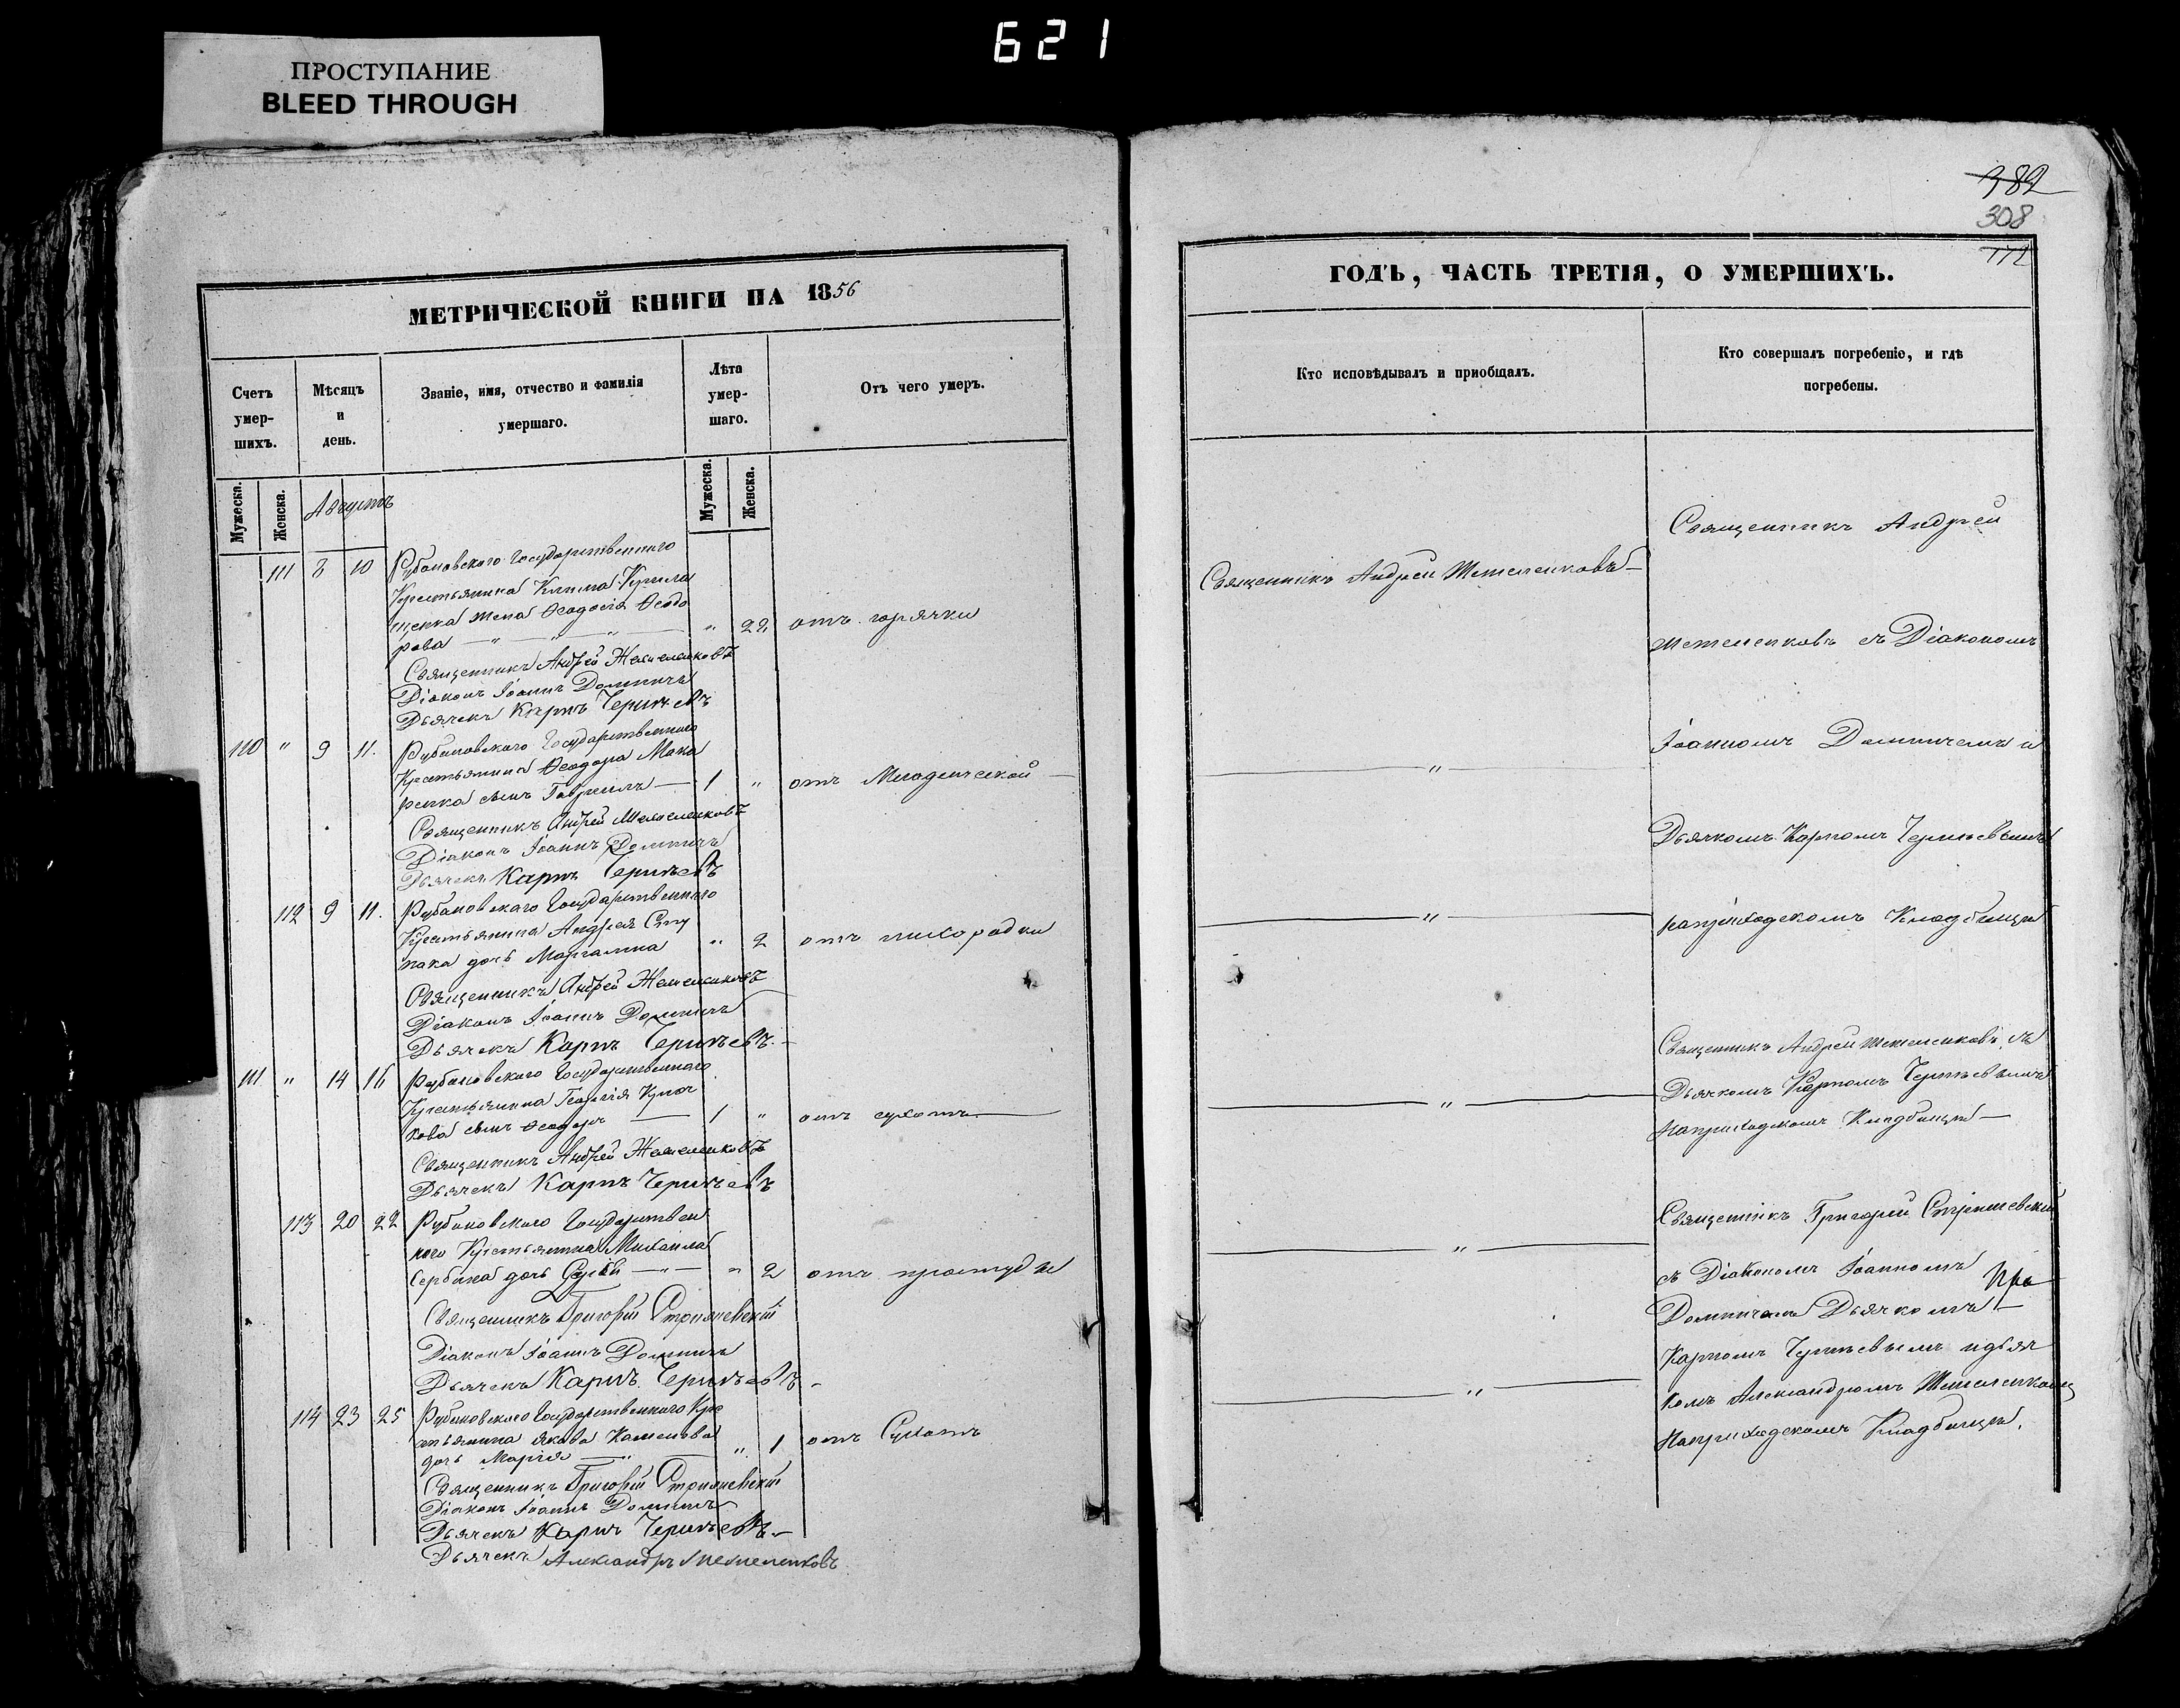 621
ПРОСТУПАНИЕ
BLEED THROUGH
МЕТРИЧЕСКОЙ КНИГИ НА 1856
Счетъ умер-шихъ.
Мѣсяцъ и день.
Званіе, имя, отчество и фамилія умершаго.
Лѣта умер-шаго.
Отъ чего умеръ.
Мужеска.
Женска.
Августъ
Мужеска.
Женска.
111 8 10 Рубановского Государственного
Крестьянина Климa
жена Ѳеодосія Ѳеодо
рова — " — " — " 22 отъ горячки
Священникъ Андрей Жежеленковъ
Діаконъ Іоаннъ Домничъ
Дьячекъ Карпъ Чернъевъ
110 " 9 11. Рубановского Государственного
Крестьянина Ѳеодора Мака
ренка сынъ Гавріилъ — 1 " отъ Младенческой —
Священникъ Андрей Жежеленковъ
Діаконъ Іоаннъ Домничъ
Дьячекъ Карпъ Чернъевъ
112 9 11. Рубановскаго Государственного
Крестьянина Андрея Сту
пака дочь " 2 отъ лихорадки
Священникъ Андрей Жежеленковъ
Діаконъ Іоаннъ Домничъ
Дьячекъ Карпъ Чернъевъ.—
111 " 14 16 Рубановского Государственного
Крестьянина Георгія Крюч
кова сынъ Ѳеодоръ — 1 " отъ сухотъ —
Священникъ Андрей Жежеленковъ
Дьячекъ Карпъ Чернъевъ
113 20 22 Рубановского Государствен
ного Крестьянина Михаила
Сербина дочь — " — " 2 отъ простуды
Священникъ Григорій Стрижевскій
Діаконъ Іоаннъ Домничъ
Дьячекъ Карпъ Чернъевъ —
114 23 25 Рубановского Государственного Кре
стьянина Якова
дочь Марія — " — " 1 отъ Сухотъ
Священникъ Григорій Стрижевскій
Діаконъ Іоаннъ Домничъ
Дьячекъ Карпъ Чернъевъ.—
Дьячекъ Александръ Жежеленковъ
382
308
112
ГОДЪ, ЧАСТЬ ТРЕТІЯ, О УМЕРШИХЪ.
Кто исповѣдывалъ и пріобщалъ.
Кто совершалъ погребеніе, и гдѣ погребены.
Священникъ Андрей Жежеленковъ —
"
"
"
"
"
Священникъ Андрей
Жежеленковъ съ Діакономъ
Іоанномъ Домничемъ и
Дьячкомъ Карпомъ Чернъевымъ
наприходскомъ Кладбищѣ
Священникъ Андрей Жежеленковъ съ
Дьячкомъ Карпомъ Чернъевымъ
Наприходскомъ Кладбищѣ —
Священникъ Григорій Стрижевскій
съ Діакономъ Іоанномъ
Домничемъ Дьячкомъ
Карпомъ Чернъевымъ идьяч
комъ Александромъ Жежеленковы
Наприходскомъ Кладбищѣ.